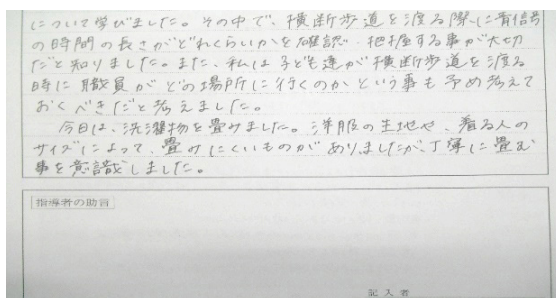 について学びました。その中で、横断歩道を渡る際に青信号
の時間の長さがどれくらいかを確認・把握する事が大切
だと知りました。また、私は子ども達が横断歩道を渡る
時に職員がどの場所に行くのかという事も予め考えて
おくべきだと考えました。
今日は、洗濯物を畳みました。洋服の生地や、着る人の
サイズによって、畳みにくいものがありましたが、丁寧に畳む
事を意識しました。
指導者の助言
記入者